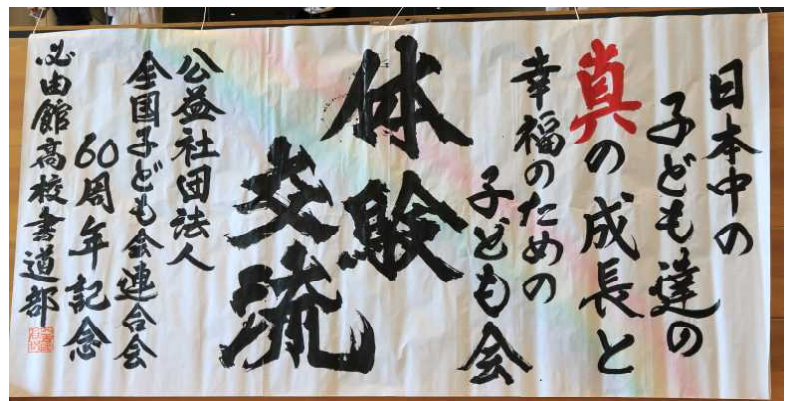 日本中の
子ども達の
真の成長と
幸福のための
子ども会
体験
交流
公益社団法人
全国子ども会連合会
60周年記念
必由館高校書道部